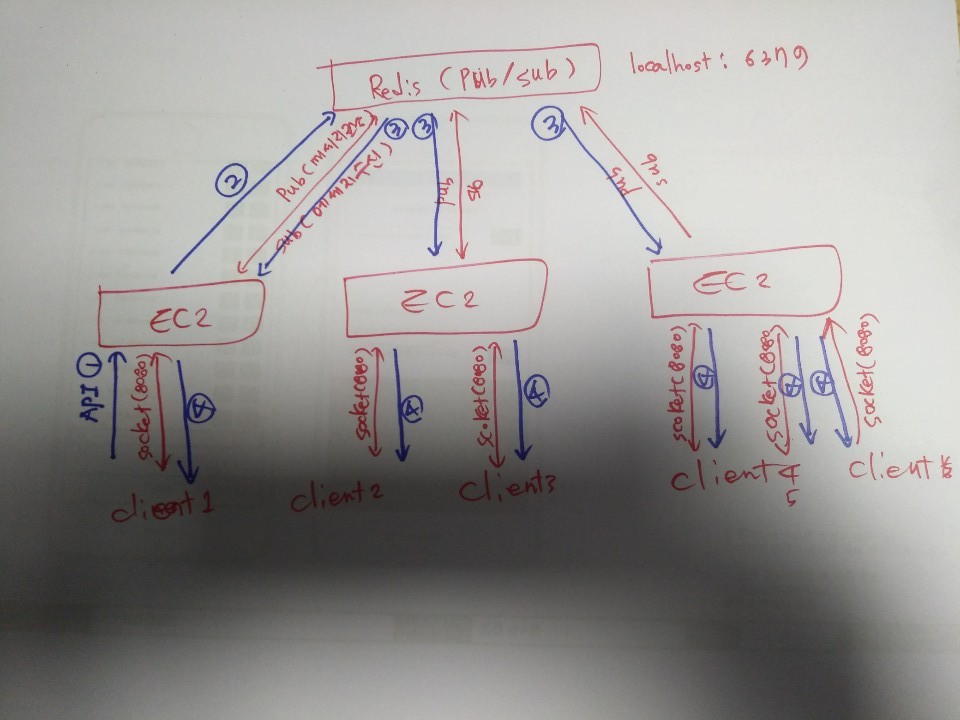 Redis (Pub/sub)
localhost: 6379
②
Pub(메시지전도)
③
③
③
sub(메세지수신)
pub
sub
pub
sub
EC2
EC2
EC2
API ①
socket(8080)
④
socket(8080)
④
socket(8080)
④
socket(8080)
④
socket(8080)
④
④
socket(8080)
client 1
client 2
client 3
client 4
5
client